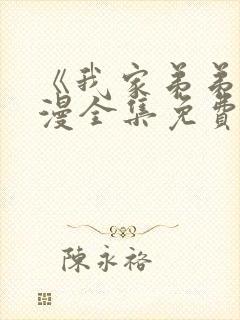 《我家弟弟
漫全集免費
陳永裕